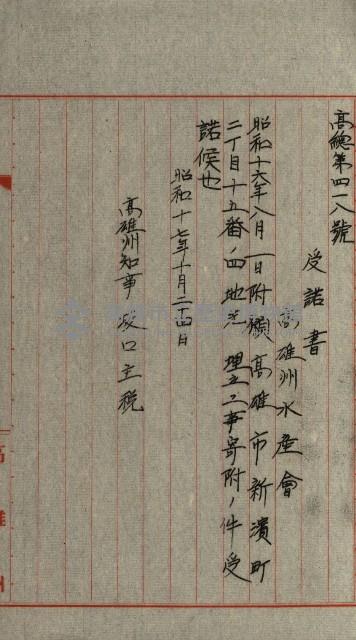 高總第四一八號
受諾書
高雄州水産會
昭和十六年八月一日附願高雄市新濱町
二丁目十五番ノ四地先埋立工事寄附ノ件受
諾候也
昭和十七年十月二十四日
高雄州知事 坂口主税
高雄州